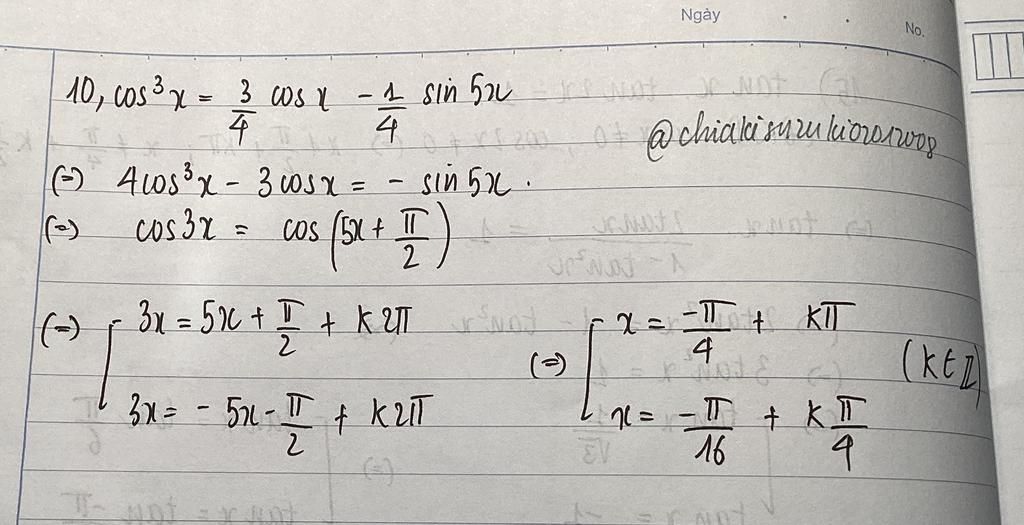 Ngày
No.
10, cos³x = 3/4 cos x - 1/4 sin 5x
@chiakisuzuki07012008
(=) 4cos³x - 3cosx = - sin 5x.
(=) cos3x = cos(5x + π/2)
(=) [ 3x = 5x + π/2 + k2π (=) [ x = -π/4 + kπ (k∈ℤ)
3x = - 5x - π/2 + k2π x = -π/16 + k π/4